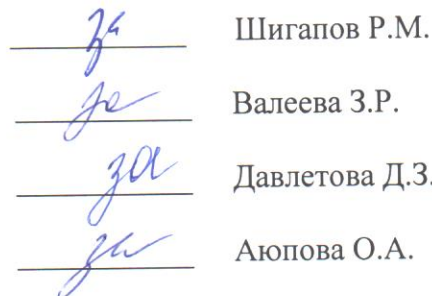 за Шигапов Р.М.
за Валеева З.Р.
за Давлетова Д.З.
за Аюпова О.А.